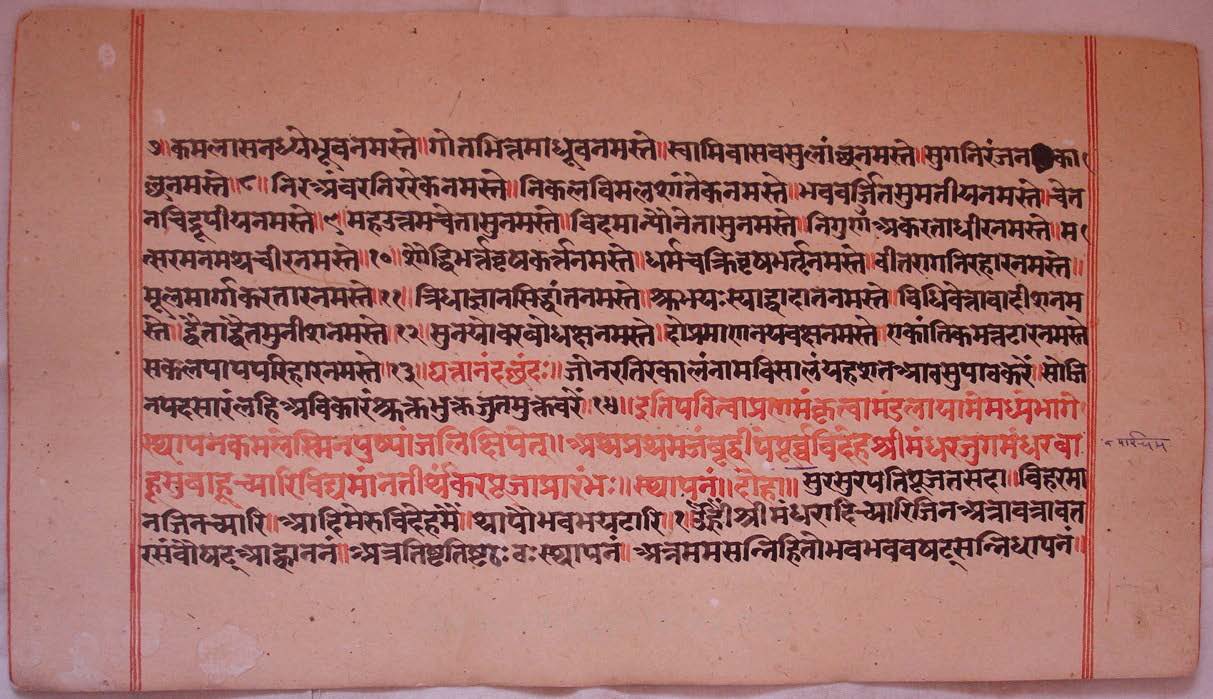 ७॥कमलासनध्येभूवनमस्ते॥गोतमभिन्नमाधूवनमस्ते॥स्वामिवासवसुलांछनमस्ते॥सुगनिरंजन का
छनमस्ते॥८॥निरअंबरनिररेकनमस्ते॥निकलविमलशांतेकनमस्ते॥भववर्जितसुमतीयनमस्ते॥चेत
नचिद्रूपीयनमस्ते॥९॥महउत्तमचेतासुनमस्ते॥विदमान्यौनेतासुनमस्ते॥निगुर्गाअकरताधीरनमस्ते॥म
त्सरमनमथचीरनमस्ते॥१०॥ वृषकर्त्तनमस्ते॥धर्मचक्रिवृषभर्तृनमस्ते॥वीतरागनिरहारनमस्ते॥
मूलमार्गाकरतारनमस्ते॥११॥त्रिधाज्ञानसिद्धांतनमस्ते॥ स्याद्वादातनमस्ते॥विधिवेत्तावादीशनम
स्ते॥द्वैताद्वैतमुनीशनमस्ते॥१२॥सुनयोवरबोधक्षनमस्ते॥दोप्रमाणनयवक्षनमस्ते॥एकांतिकमतटारनमस्ते
सकलपापपरिहारनमस्ते॥१३॥घत्तानंदछंदः॥जोनरतिरकालंनामविसालंपहशतआवसुपावकरें॥सोजि
नपदसारंलहिअविकारंभक्तभुक्तजुतमुक्तवरें॥१४॥इतिपवित्वाप्रणामंकृत्वामंडलायामेमध्यभागे
स्थापनकमलेस्मिनपुष्पांजलिक्षिपेत्॥अथप्रथमजंबूद्वीपेपूर्वविदेहश्रीमंधरजुगमंधरबा
हूसुबाहूच्यारिविद्यमांनतीर्थंकरपूजाप्रारंभः॥स्थापनं॥दोहा॥सुरसुरपतिपूजतसदा॥विहरमा
नजिनच्यारि॥आदिमेरुविदेहमैं॥थापौभवभयटारि॥१॥ॐह्रीश्रीमंधरादिच्यारिजिनअत्रावत्रावत
रसंवौषट्आह्वाननं॥अत्रतिष्टतिष्टठःठःस्थापनं॥अत्रममसन्निहितोभवभववषट्सन्निधापनं॥